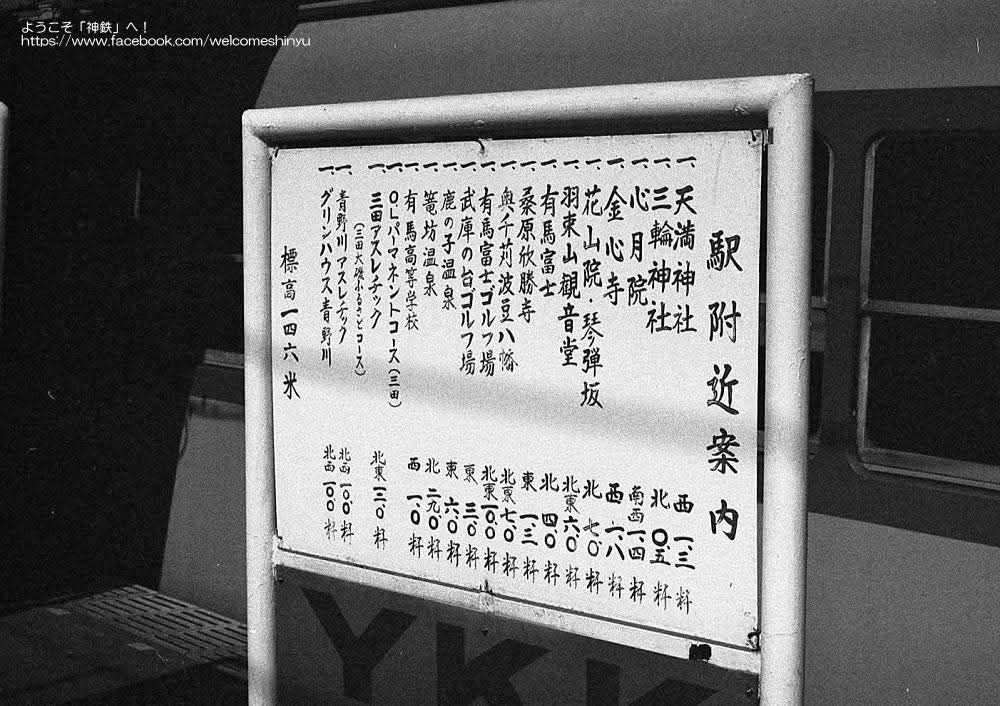 ようこそ「神鉄」へ！
https://www.facebook.com/welcomeshinyu
駅附近案内
一、天満神社 西 一.三粁
一、三輪神社 北 〇.五粁
一、心月院 南西 一.四粁
一、金心寺 西 一.八粁
一、花山院・琴弾坂 北 七.〇粁
一、羽束山観音堂 北東 六.〇粁
一、有馬富士 北 四.〇粁
一、桑原欣勝寺 東 一.三粁
一、奥千苅波豆八幡 北東 七.〇粁
一、有馬富士ゴルフ場 北東 一〇.〇粁
一、武庫の台ゴルフ場 東 三.〇粁
一、鹿の子温泉 東 六.〇粁
一、篭坊温泉 北 二九.〇粁
一、有馬高等学校 西 一.〇粁
一、OLパーマネントコース(三田)
一、三田アスレチック 北東 一三.〇粁
(三田大磯ふるさとコース)
一、青野川アスレチック 北西 一〇.〇粁
一、グリンハウス青野川 北西 一〇.〇粁
標高一四六米
YKK